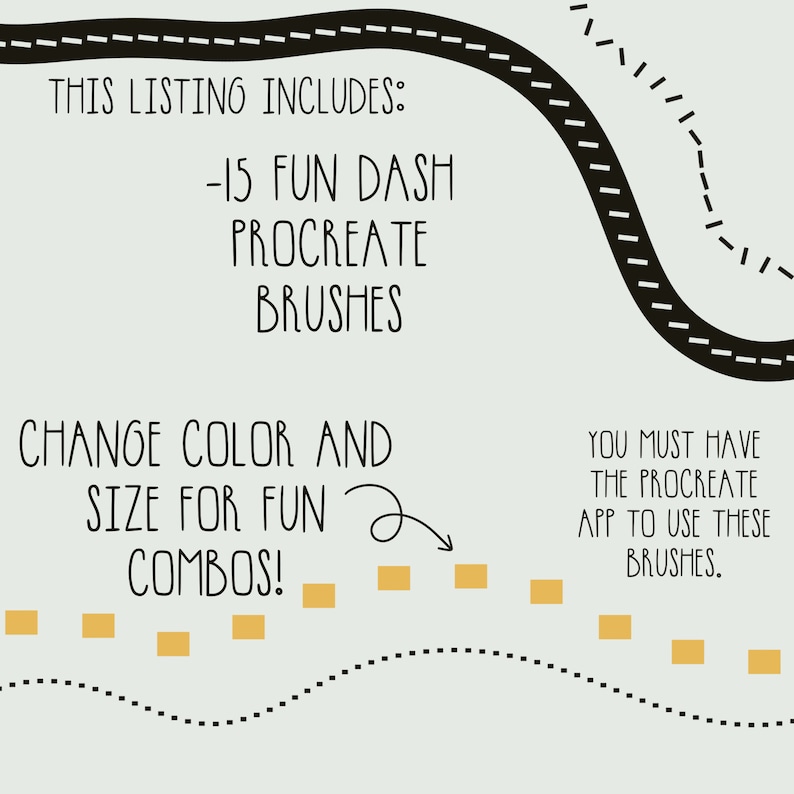 THIS LISTING INCLUDES:
-15 FUN DASH
PROCREATE
BRUSHES
CHANGE COLOR AND
SIZE FOR FUN
COMBOS!
YOU MUST HAVE
THE PROCREATE
APP TO USE THESE
BRUSHES.